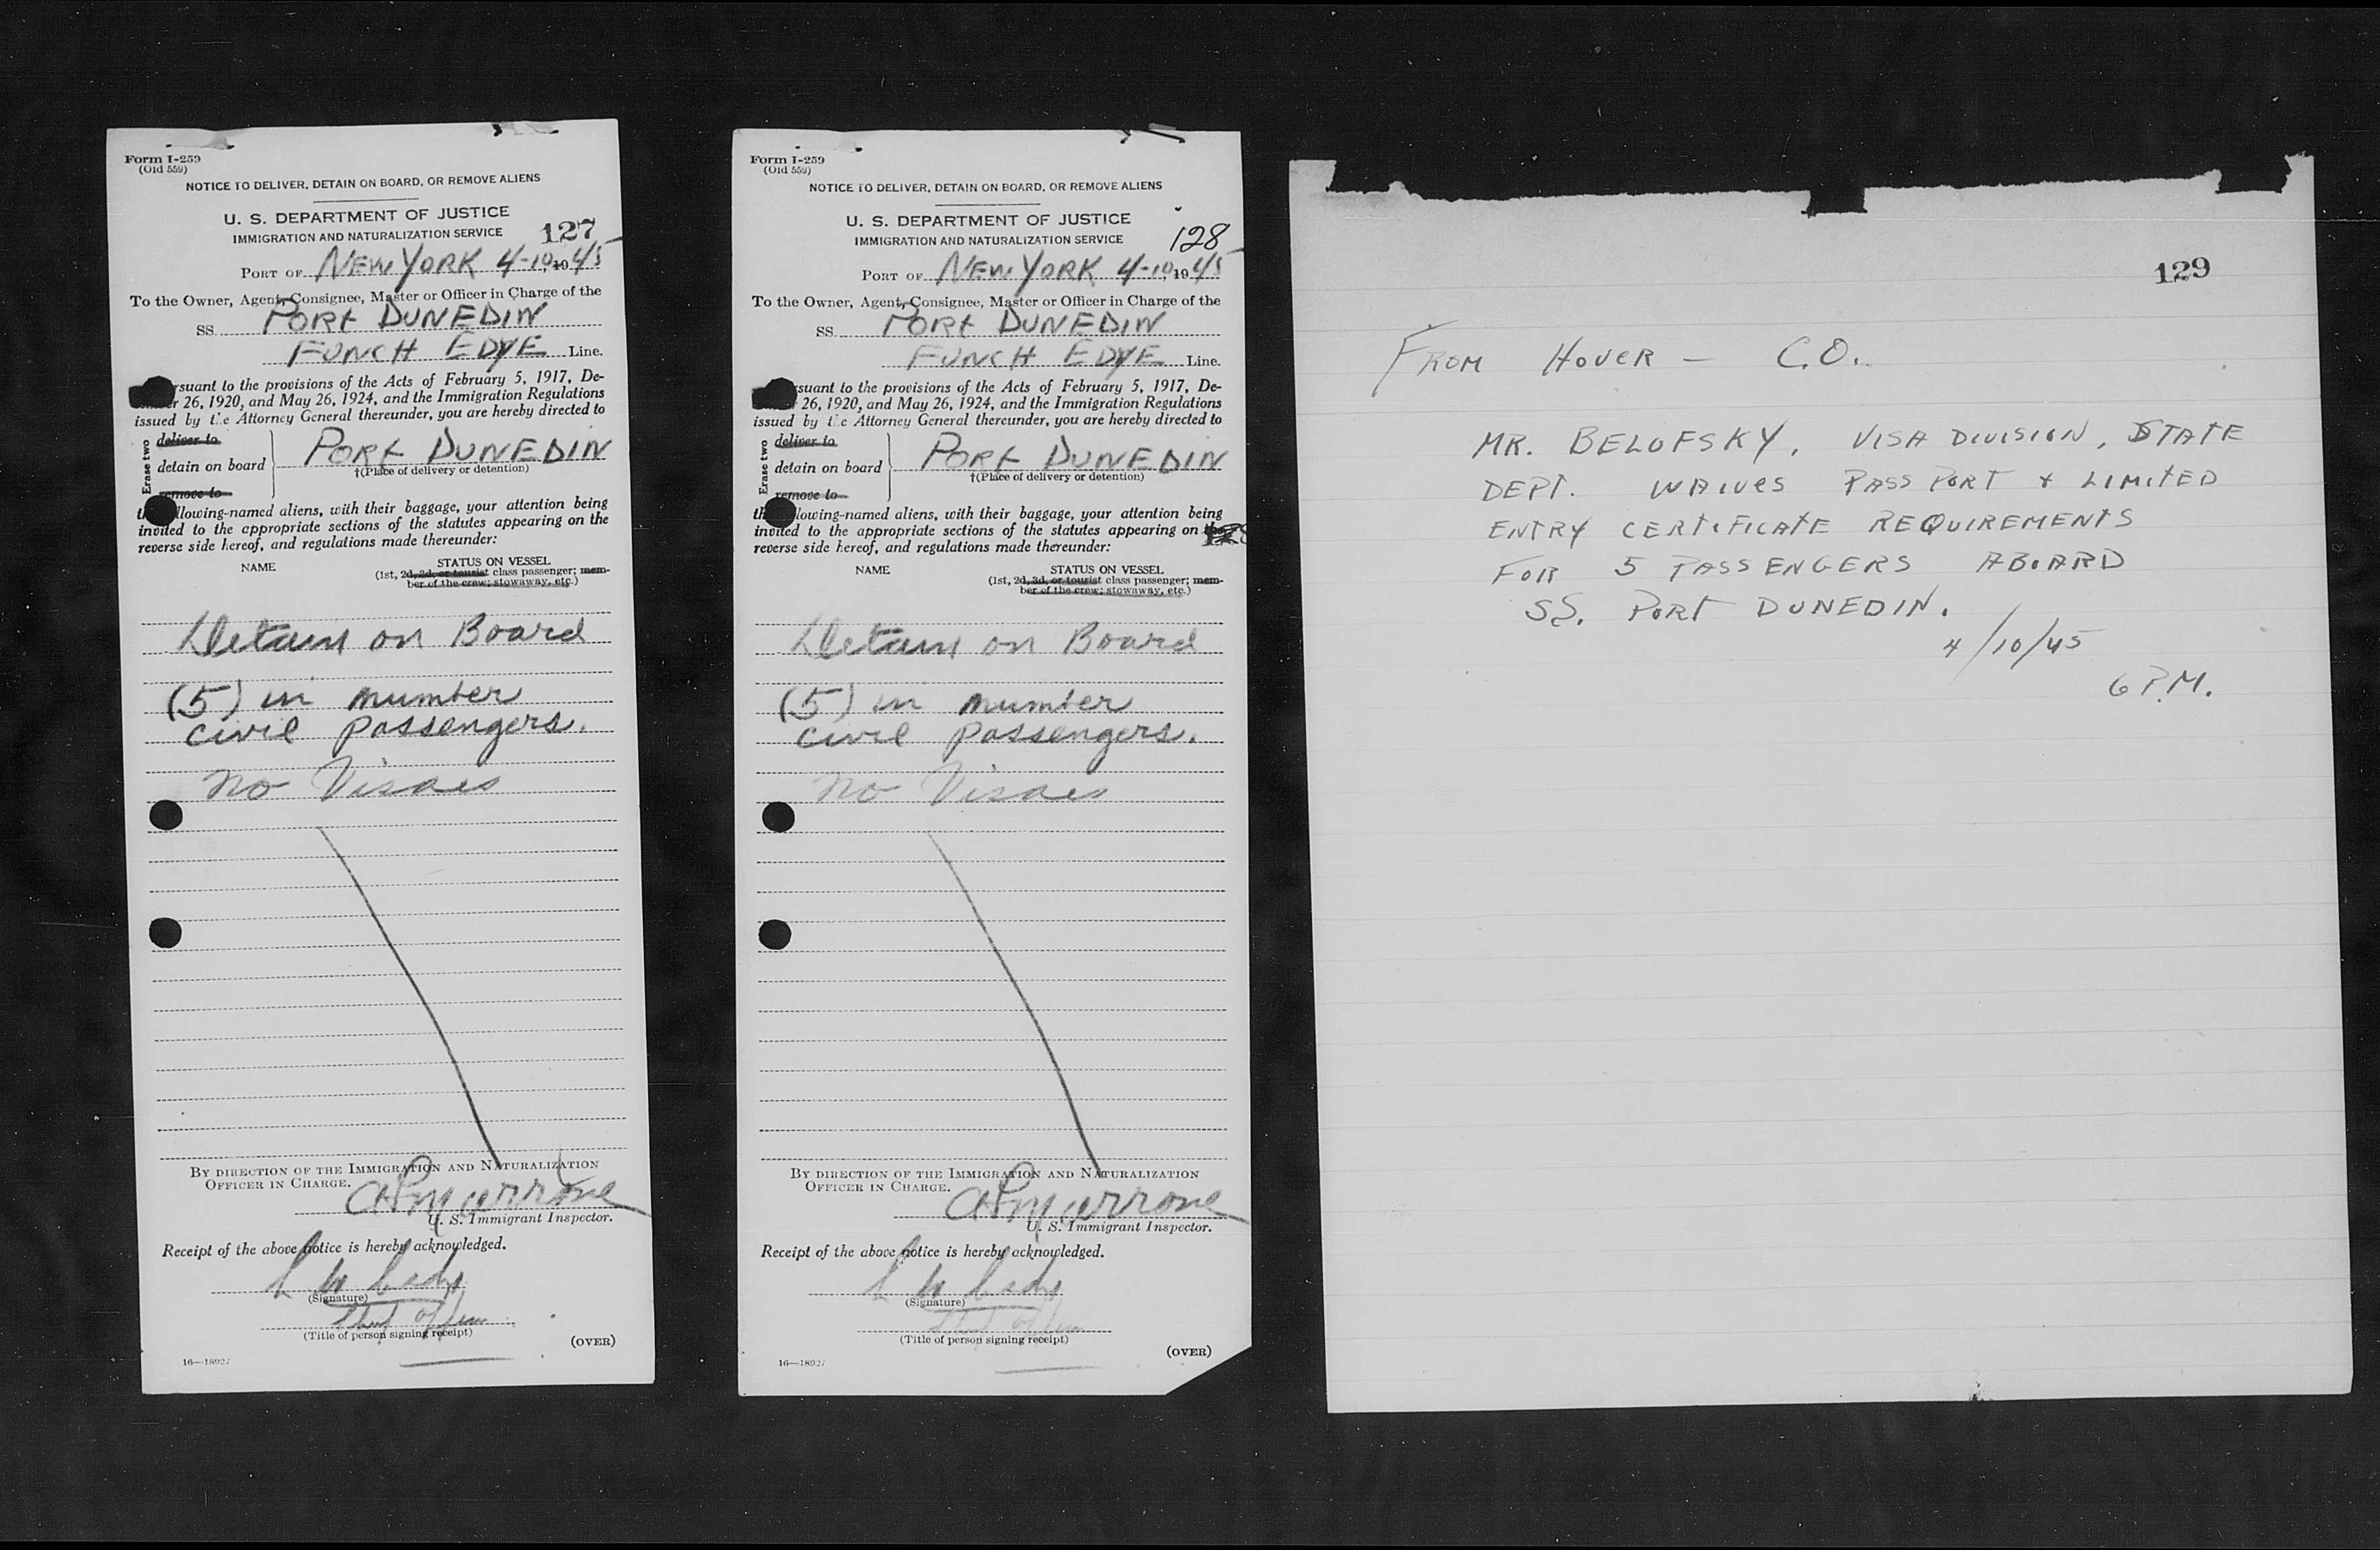 Form I-259
(Old 559)
NOTICE TO DELIVER, DETAIN ON BOARD, OR REMOVE ALIENS
U. S. DEPARTMENT OF JUSTICE
IMMIGRATION AND NATURALIZATION SERVICE
127
PORT OF NEW YORK 4-10, 1945
To the Owner, Agent, Consignee, Master or Officer in Charge of the
SS. PORT DUNEDIN
FUNCH EDYE Line.
rsuant to the provisions of the Acts of February 5, 1917, De-
r 26, 1920, and May 26, 1924, and the Immigration Regulations
issued by the Attorney General thereunder, you are hereby directed to
Erase two
deliver to
detain on board
remove to
PORT DUNEDIN
†(Place of delivery or detention)
llowing-named aliens, with their baggage, your attention being
invited to the appropriate sections of the statutes appearing on the
reverse side hereof, and regulations made thereunder:
NAME
STATUS ON VESSEL
(1st, 2d, 3d, or tourist class passenger; mem-
ber of the crew; stowaway, etc.)
Detain on Board
(5) in number
civil passengers.
no Visaes
BY DIRECTION OF THE IMMIGRATION AND NATURALIZATION
OFFICER IN CHARGE.
U. S. Immigrant Inspector.
Receipt of the above notice is hereby acknowledged.
(Signature)
(Title of person signing receipt)
(OVER)
16—18927
Form I-259
(Old 559)
NOTICE TO DELIVER, DETAIN ON BOARD, OR REMOVE ALIENS
U. S. DEPARTMENT OF JUSTICE
IMMIGRATION AND NATURALIZATION SERVICE
128
PORT OF NEW YORK 4-10, 1945
To the Owner, Agent, Consignee, Master or Officer in Charge of the
SS. PORT DUNEDIN
FUNCH EDYE Line.
rsuant to the provisions of the Acts of February 5, 1917, De-
26, 1920, and May 26, 1924, and the Immigration Regulations
issued by the Attorney General thereunder, you are hereby directed to
Erase two
deliver to
detain on board
remove to
PORT DUNEDIN
†(Place of delivery or detention)
llowing-named aliens, with their baggage, your attention being
invited to the appropriate sections of the statutes appearing on the
reverse side hereof, and regulations made thereunder:
NAME
STATUS ON VESSEL
(1st, 2d, 3d, or tourist class passenger; mem-
ber of the crew; stowaway, etc.)
Detain on Board
(5) in number
civil passengers.
no Visaes
BY DIRECTION OF THE IMMIGRATION AND NATURALIZATION
OFFICER IN CHARGE.
U. S. Immigrant Inspector.
Receipt of the above notice is hereby acknowledged.
(Signature)
(Title of person signing receipt)
(OVER)
16—18927
129
FROM HOVER — C.O.
MR. BELOFSKY, VISA DIVISION, STATE
DEPT. WAIVES PASSPORT + LIMITED
ENTRY CERTIFICATE REQUIREMENTS
FOR 5 PASSENGERS ABOARD
SS. PORT DUNEDIN.
4/10/45
6 P.M.